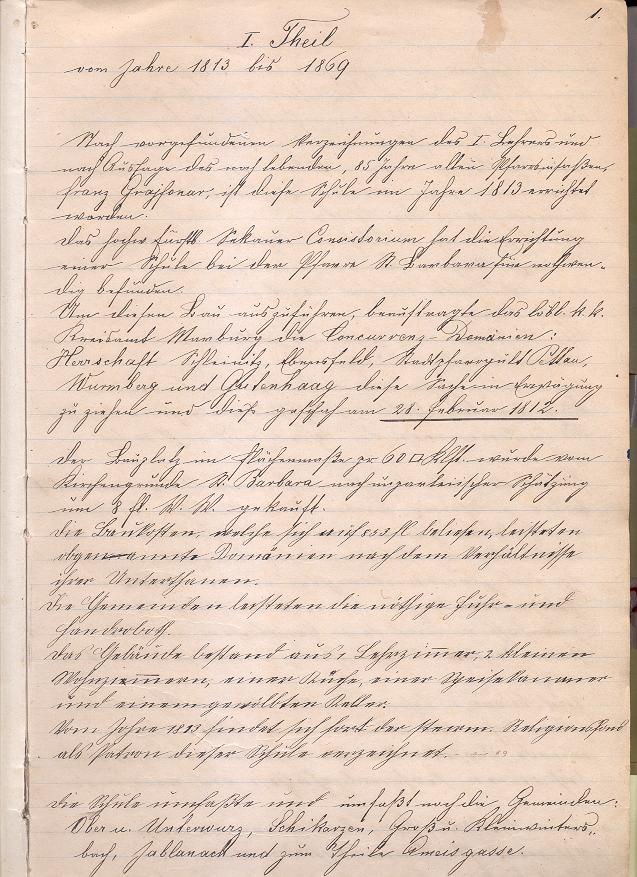 1.
I. Theil
vom Jahre 1813 bis 1869
Nach vorgefundenen Verzeichnungen des I. Lehrers und
nach Aussage des noch lebenden, 85 Jahre alten Pfarrinsaßen,
Franz Grajfonar, ist diese Schule im Jahre 1813 errichtet
worden.
Das hochw. fürstb. Sekauer Consistorium hat die Errichtung
einer Schule bei der Pfarre St. Barbara für nothwen-
dig befunden.
Um diesen Bau auszuführen, beauftragte das löbl. k. k.
Kreisamt Marburg die Concurrenz-Domänien:
Herrschaft Schleinitz, Ebensfeld, Stadtpfarrgült Pettau,
Wurmberg und Gutenhaag diese Sache in Erwägung
zu ziehen und dieß geschah am 28. Februar 1812.
Der Bauplatz im Flächenmaße pr 60 □ Klft. wurde vom
Kirchengrunde St. Barbara nach unparteiischer Schätzung
um 8 fl. W. W. gekauft.
Die Baukosten, welche sich auf 833 fl beliefen, leisteten
obgenannte Domänien nach dem Verhältnisse
ihrer Unterthanen.
Die Gemeinden leisteten die nöthige Fuhr- und
Handroboth.
Das Gebäude bestand aus 1 Lehrzimmer, 2 kleinen
Wohnzimmern, einer Küche, einer Speisekammer
und einem gewölbten Keller.
Vom Jahre 1813 findet sich fort der steierm. Religionsfond
als Patron dieser Schule verzeichnet.
Die Schule umfaßte und umfaßt noch die Gemeinden:
Ober u. Unterwurz, Schikarzen, Groß u. Kleinwinters-
bach, Jablanach und zum Theile Ameisgasse.